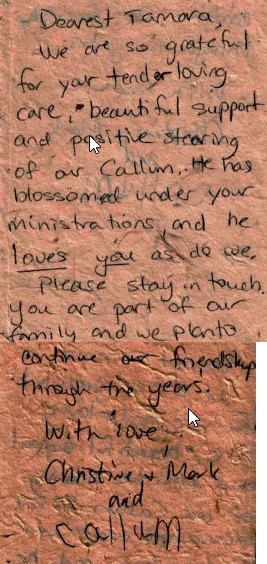 Dearest Tamara,
We are so grateful
for your tender loving
care, beautiful support
and positive stearing
of our Callum. He has
blossomed under your
ministrations, and he
loves you as do we.
Please stay in touch.
you are part of our
family and we plan to
continue our friendship
through the years.
With love,
Christine + Mark
and
Callum